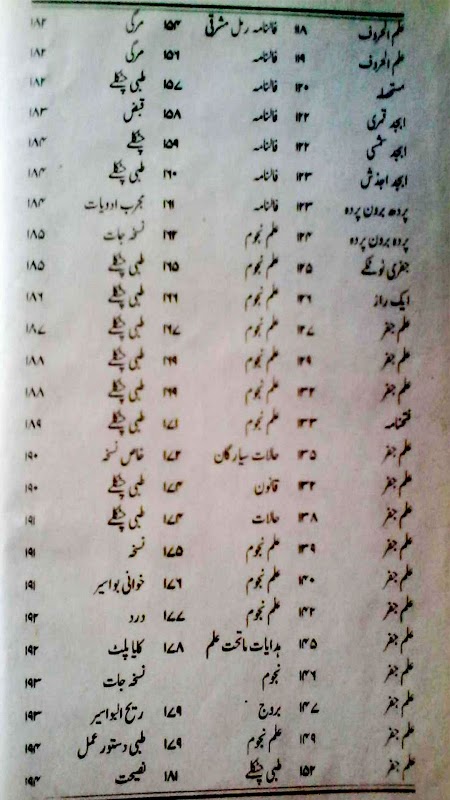 علم الحروف ۱۱۸ فالنامہ رمل مشرقی ۱۵۴ مرگی ۱۸۲
علم الحروف ۱۱۹ فالنامہ ۱۵۶ مرگی ۱۸۲
مستحصلہ ۱۲۰ فالنامہ ۱۵۷ طبی چٹکلے ۱۸۲
ابجد قمری ۱۲۲ فالنامہ ۱۵۸ قبض ۱۸۳
ابجد شمسی ۱۲۲ فالنامہ ۱۵۹ چٹکلے ۱۸۴
ابجد اجذش ۱۲۳ فالنامہ ۱۶۰ طبی چٹکلے ۱۸۴
پردہ برون پردہ ۱۲۳ فالنامہ ۱۶۱ مجرب ادویات ۱۸۴
پردہ برون پردہ ۱۲۴ علم نجوم ۱۶۲ نسخہ جات ۱۸۵
جفری ٹوٹکے ۱۲۵ علم نجوم ۱۶۵ طبی چٹکلے ۱۸۵
ایک راز ۱۲۶ علم نجوم ۱۶۶ طبی چٹکلے ۱۸۶
علم جفر ۱۲۷ علم نجوم ۱۶۷ طبی چٹکلے ۱۸۷
علم جفر ۱۲۹ علم نجوم ۱۶۹ طبی چٹکلے ۱۸۸
علم جفر ۱۳۲ علم نجوم ۱۶۹ طبی چٹکلے ۱۸۸
فتحنامہ ۱۳۳ علم نجوم ۱۷۱ طبی چٹکلے ۱۸۹
علم جفر ۱۳۵ حالات سیارگان ۱۷۲ خاص نسخہ ۱۹۰
علم جفر ۱۳۲ قانون ۱۷۴ طبی چٹکلے ۱۹۰
علم جفر ۱۳۸ حالات ۱۷۴ طبی چٹکلے ۱۹۱
علم جفر ۱۳۹ علم نجوم ۱۷۵ نسخہ ۱۹۱
علم جفر ۱۴۰ علم نجوم ۱۷۶ خوانی بواسیر ۱۹۱
علم جفر ۱۴۲ علم نجوم ۱۷۷ درد ۱۹۲
علم جفر ۱۴۵ ہدایات ماتحت علم ۱۷۸ کایا پلٹ ۱۹۲
علم جفر ۱۴۶ نجوم نسخہ جات ۱۹۳
علم جفر ۱۴۷ بروج ۱۷۹ ریح البواسیر ۱۹۳
علم جفر ۱۴۹ علم نجوم ۱۷۹ طبی دستور عمل ۱۹۴
علم جفر ۱۵۲ طبی چٹکلے ۱۸۱ نصیحت ۱۹۴